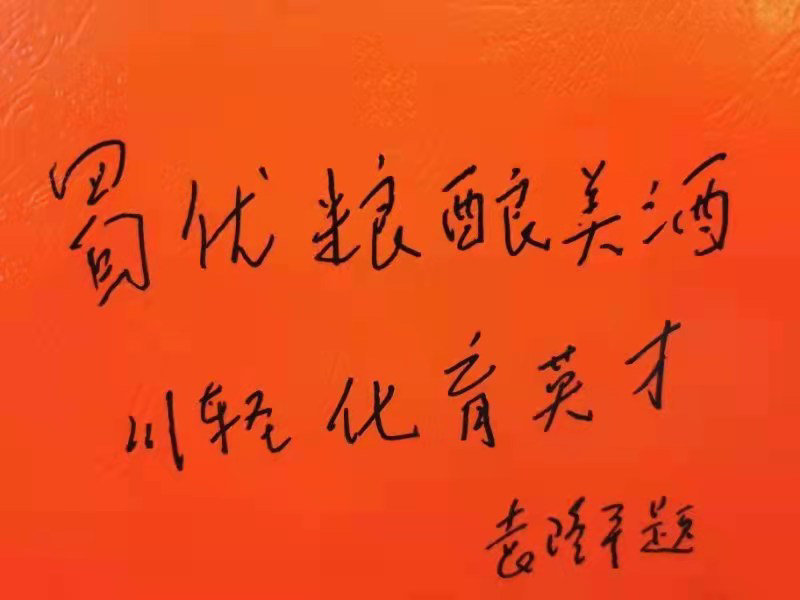 蜀优粮酿美酒
川轻化育英才
袁隆平题